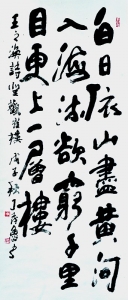 白日依山盡黄河
入海流欲窮千里
目更上一層樓
王之渙詩登鸛雀樓 戊子秋丁